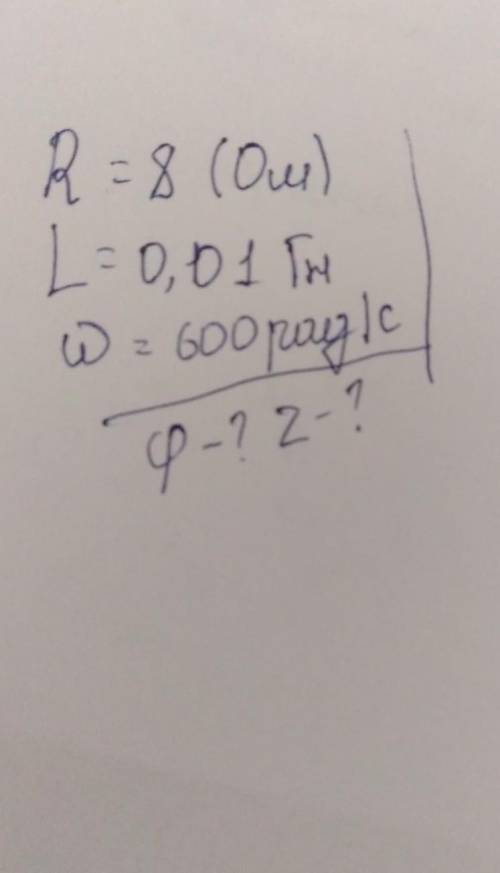 R = 8 (Ом)
L = 0,01 Гн
ω = 600 рад/с
φ - ? Z - ?